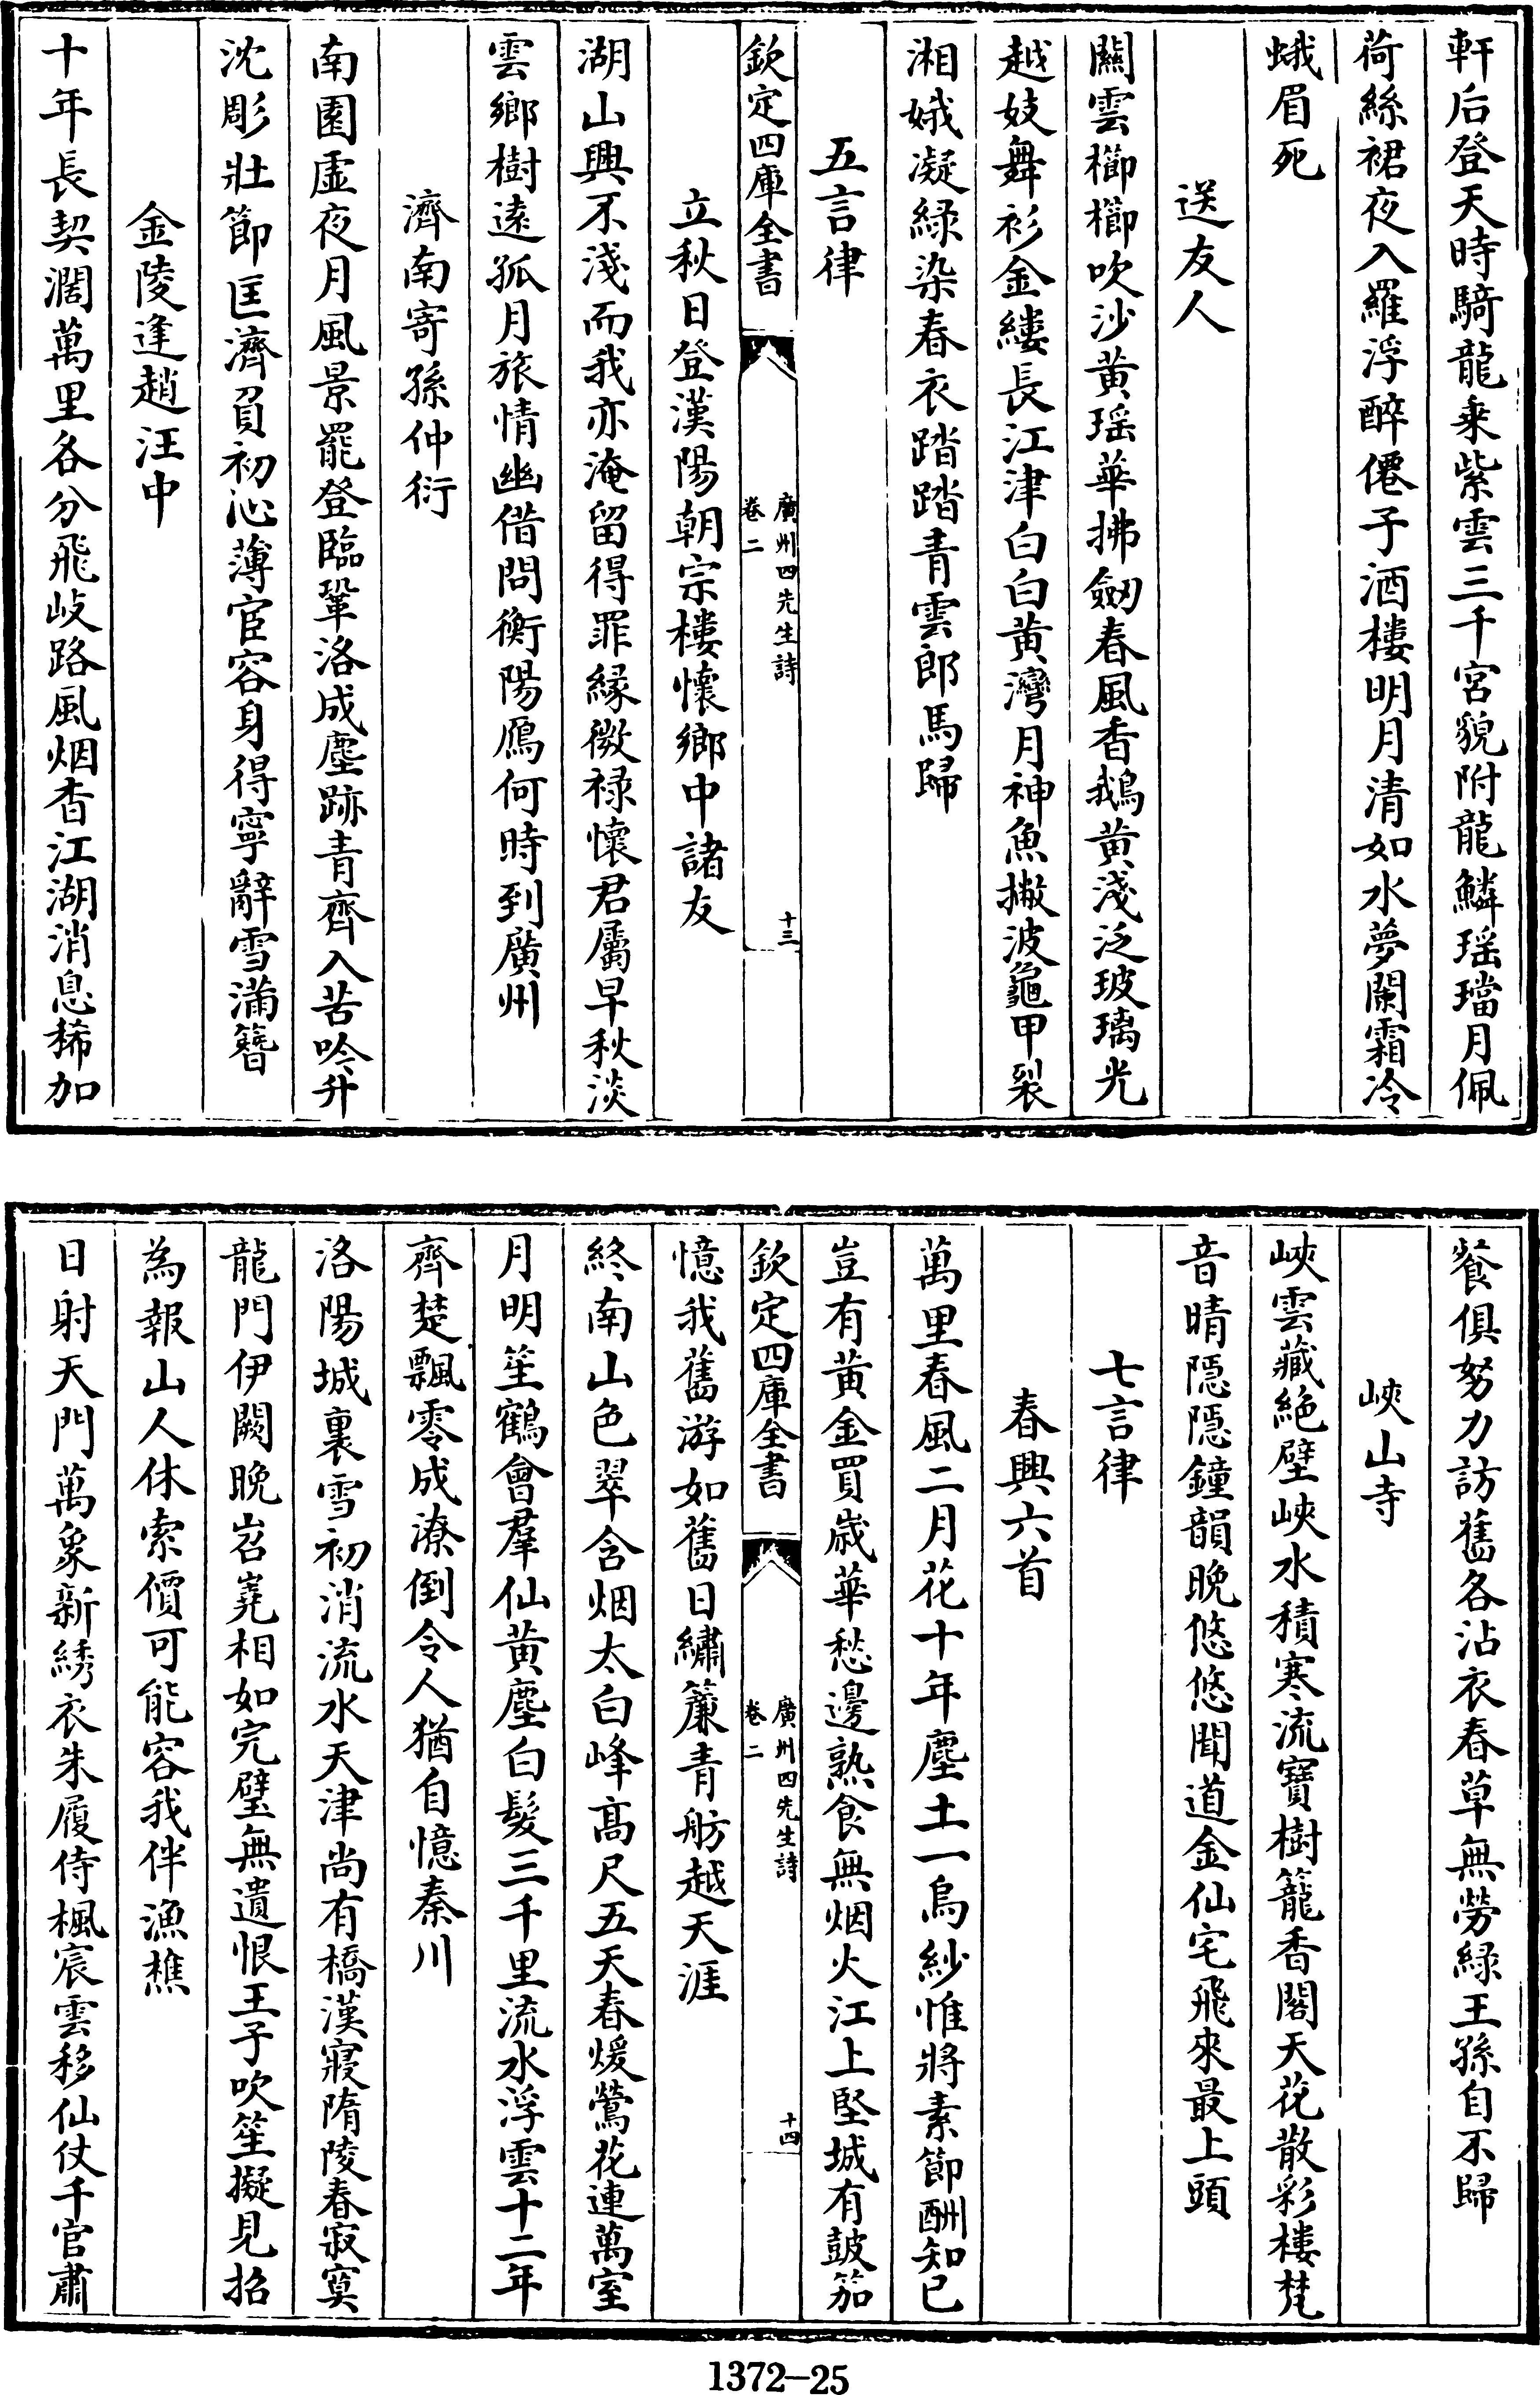 軒后登天時騎龍乗紫雲三千宮貌附龍鱗瑶璫月佩
荷絲裙夜入羅浮醉僊子酒樓明月清如水夢闌霜冷
蛾眉死
送友人
闗雲櫛櫛吹沙黄瑶華拂劒春風香鵝黄淺泛玻璃光
越妓舞衫金縷長江津白白黄灣月神魚撇波龜甲裂
湘娥凝緑染春衣踏踏青雲郎馬歸
五言律
欽定四庫全書
廣州四先生詩
卷二
十三
立秋日登漢陽朝宗樓懷鄉中諸友
湖山興不淺而我亦淹留得罪縁微禄懷君屬早秋淡
雲鄉樹逺孤月旅情幽借問衡陽鴈何時到廣州
濟南寄孫仲衍
南園虚夜月風景罷登臨鞏洛成塵跡青齊入苦吟升
沈彫壯節匡濟負初沁薄宦容身得寧辭雪滿簪
金陵逢趙汪中
十年長契濶萬里各分飛岐路風烟杳江湖消息稀加
餐俱努力訪舊各沾衣春草無勞緑王孫自不歸
峽山寺
峽雲藏絶壁峽水積寒流寳樹籠香閣天花散彩樓梵
音晴隠隠鐘韻晚悠悠聞道金仙宅飛來最上頭
七言律
春興六首
萬里春風二月花十年塵土一烏紗惟將素節酬知已
豈有黄金買歳華愁邊熟食無烟火江上堅城有鼓笳
欽定四庫全書
廣州四先生詩
卷二
十四
憶我舊游如舊日繡簾青舫越天涯
終南山色翠含烟太白峰髙尺五天春煖鶯花連萬室
月明笙鶴會羣仙黄塵白髮三千里流水浮雲十二年
齊楚飄零成潦倒令人猶自憶秦川
洛陽城裏雪初消流水天津尚有橋漢寢隋陵春寂寞
龍門伊闕晚岧嶤相如完璧無遺恨王子吹笙擬見招
為報山人休索價可能容我伴漁樵
日射天門萬象新綉衣朱履侍楓宸雲移仙仗千官肅
1372-25